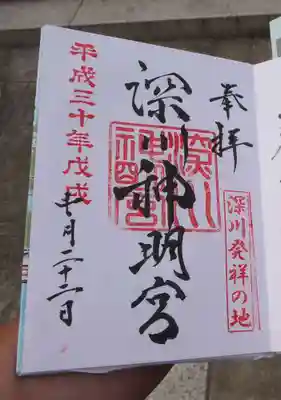 奉拝
深川発祥の地
深川神明宮
平成三十年戊戌
月二十二日